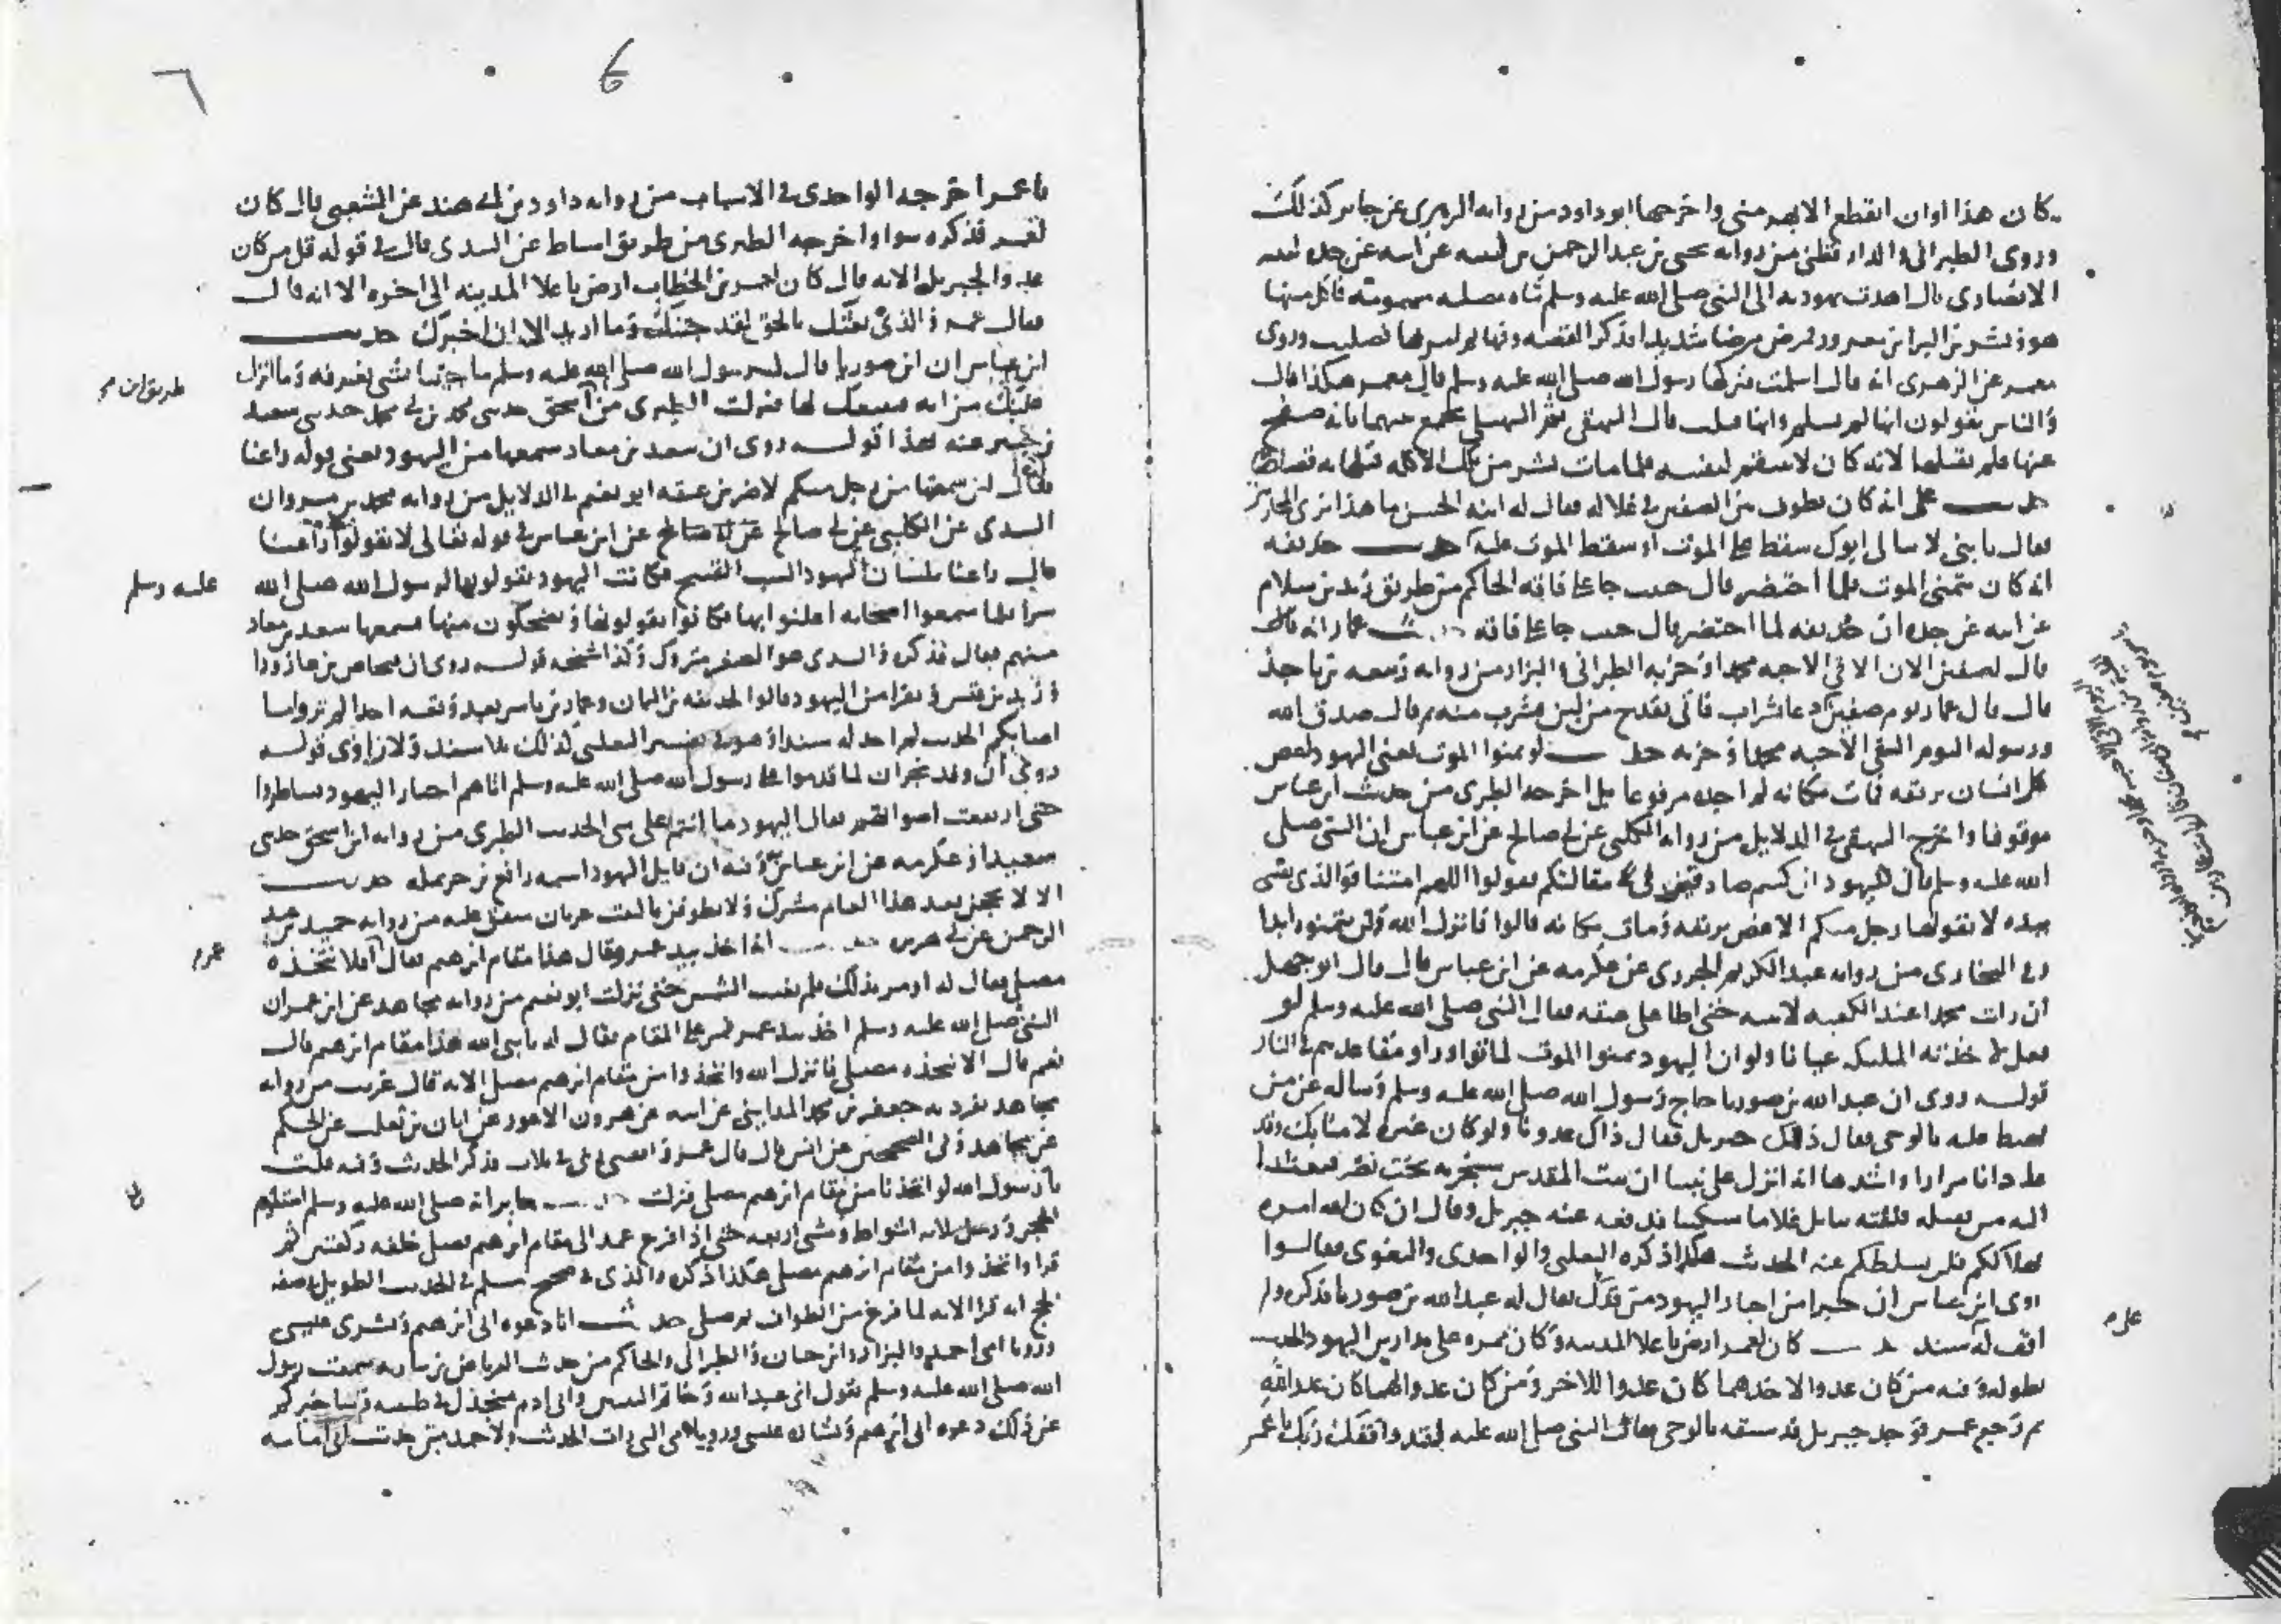 كان هذا اوان انقطع الابهر مني واخرجها ابو داود من رواية الزهري عن جابر كذلك
وروى الطبراني والدارقطني من رواية يحيى بن عبد الرحمن بن لبيبة عن ابيه عن جده لبيبة
الانصاري قال اهدت يهودية الى النبي صلى الله عليه وسلم شاة مصلية مسمومة فاكل منها
هو وبشر بن البراء بن معرور فمرض مرضا شديدا فذكر القصة وفيها ثم امر بها فصلبت وروى
معمر عن الزهري انه قال اسلمت فتركها رسول الله صلى الله عليه وسلم قال معمر هكذا قال
والناس يقولون انها لم تسلم وانها قتلت قال البيهقي ثم السهيلي يجمع بينهما بانه صفح
عنها فلم يقتلها لانه كان لا ينتقم لنفسه فلما مات بشر من تلك الاكلة قتلها به قصاصا
حديث علي انه كان يطوف بين الصفين في غلالة فقال له ابنه الحسن ما هذا بزي المحارب
فقال يا بني لا يبالي ابوك سقط على الموت او سقط الموت عليه حديث حذيفة
انه كان يتمنى الموت فلما احتضر قال حبيب جاء على فاقة الحاكم من طريق زيد بن سلام
عن ابيه عن جده ان حذيفة لما احتضر قال حبيب جاء على فاقة حديث عمار انه قال
قال بصفين الان الاقي الاحبة محمدا وحزبه الطبراني والبزار من رواية ربيعة بن ناجذ
قال قال عمار يوم صفين دعا بشراب فاتي بقدح من لبن فشرب منه ثم قال صدق الله
ورسوله اليوم القى الاحبة محمدا وحزبه حديث لو تمنوا الموت يعني اليهود لغص
كل انسان بريقه فمات مكانه لم اجده مرفوعا بل اخرجه الطبري من حديث ابن عباس
موقوفا واخرج البيهقي في الدلايل من رواية الكلبي عن ابي صالح عن ابن عباس ان النبي صلى
الله عليه وسلم قال لليهود ان كنتم صادقين في مقالتكم فقولوا اللهم امتنا فوالذي نفسي
بيده لا يقولها رجل منكم الا غص بريقه ومات مكانه قالوا فانزل الله ولن يتمنوه ابدا
وفي البخاري من رواية عبد الكريم الجزري عن عكرمة عن ابن عباس قال قال ابو جهل
ان رايت محمدا عند الكعبة لاتيته حتى اطا على عنقه فقال النبي صلى الله عليه وسلم لو
فعل لاخذته الملئكة عيانا ولو ان اليهود تمنوا الموت لماتوا وراوا مقاعدهم في النار
قوله روى ان عبد الله بن صوريا حاج رسول الله صلى الله عليه وسلم وساله عن من
يهبط عليه بالوحي فقال ذلك جبريل فقال ذاك عدونا ولو كان غيره لامنا بك وقد
عادانا مرارا واشدها انه انزل على نبينا ان بيت المقدس سيخربه بخت نصر فبعثنا
اليه من يقتله فلقيه ببابل غلاما مسكينا فدفع عنه جبريل وقال ان كان الله امره
بهلاككم فلن يسلطكم عليه الحديث هكذا ذكره الثعلبي والواحدي والبغوي فقالوا
روى ابن عباس ان حبرا من احبار اليهود من فدك يقال له عبد الله بن صوريا فذكره ولم
اقف له سند حديث كان لعمر ارض باعلا المدينة وكان ممره على مدارس اليهود الحديث
بطوله وفيه من كان عدوا لاحدهما كان عدوا للاخر ومن كان عدوا لهما كان عدوا لله
ثم رجع عمر فوجد جبريل قد سبقه بالوحي فقال النبي صلى الله عليه لقد وافقك ربك يا عمر
علم
6
٦
يا عمر اخرجه الواحدي في الاسباب من رواية داود بن ابي هند عن الشعبي قال كان
لعمر فذكره سواء واخرجه الطبري من طريق اسباط عن السدي قال في قوله قل من كان
عدوا لجبريل الاية قال كان لعمر بن الخطاب ارض باعلا المدينة الى اخره الا انه قال
فقال عمر والذي بعثك بالحق لقد جئتك وما اريد الا ان اخبرك حديث
ابن عباس ان ابن صوريا قال لرسول الله صلى الله عليه وسلم ما جئتنا بشي نعرفه وما انزل
عليك من اية فنتبعك لها فنزلت الطبري من ابن اسحق حدثني محمد بن ابي محمد حدثني سعيد
طريق ابن
بن جبير عنه بهذا قوله روى ان سعد بن معاذ سمعها من اليهود يعني قوله راعنا
فقال لئن سمعتها من رجل منكم لاضربن عنقه ابو نعيم في الدلايل من رواية محمد بن مروان
السدي عن الكلبي عن ابي صالح عن ابن عباس في قوله تعالى لا تقولوا راعنا
قال راعنا بلسان اليهود السب القبيح فكانت اليهود يقولونها لرسول الله صلى الله
عليه وسلم
سرا فلما سمعوا اصحابه اعلنوا بها فكانوا يقولونها ويضحكون منها فسمعها سعد بن معاذ
منهم فقال فذكره والسدي هو الصغير متروك وكذا شيخه قوله روى ان فنحاص بن عازورا
وزيد بن قيس ونفرا من اليهود قالوا لحذيفة بن اليمان وعمار بن ياسر بعد وقعة احد الم تروا ما
اصابكم الحديث لم اجد له سندا وهو في تفسير الثعلبي كذلك بلا سند ولا راوي قوله
روى ان وفد نجران لما قدموا على رسول الله صلى الله عليه وسلم اتاهم احبار اليهود فتناظروا
حتى ارتفعت اصواتهم فقال اليهود ما انتم على شي الحديث الطبري من رواية ابن اسحق حدثني
سعيد او عكرمة عن ابن عباس وفيه ان قايل اليهود اسمه رافع بن حريملة حديث
الا لا يحجن بعد هذا العام مشرك ولا يطوفن بالبيت عريان متفق عليه من رواية حميد بن عبد
الرحمن عن ابي هريرة حديث انه اخذ بيد عمر وقال هذا مقام ابرهيم فقال افلا نتخذه
مصلى فقال له لم اومر بذلك فلم تغب الشمس حتى نزلت ابو نعيم من رواية مجاهد عن ابن عمر ان
النبي صلى الله عليه وسلم اخذ بيد عمر فمر على المقام فقال له يا نبي الله هذا مقام ابرهيم قال
نعم قال الا نتخذه مصلى فانزل الله واتخذوا من مقام ابرهيم مصلى الاية قال غريب من رواية
مجاهد تفرد به جعفر بن محمد المدايني عن ابيه عن هرون الاعور عن ابان بن تغلب عن الحكم
عن مجاهد وفي الصحيحين عن انس قال قال عمر وافقني ربي في ثلاث فذكر الحديث وفيه قلت
يا رسول الله لو اتخذنا من مقام ابرهيم مصلى فنزلت حديث جابر انه صلى الله عليه وسلم استلم
الحجر ورمل ثلاثة اشواط ومشى اربعة حتى اذا فرغ عمد الى مقام ابرهيم فصلى خلفه ركعتين ثم
قرا واتخذوا من مقام ابرهيم مصلى هكذا ذكره والذي في صحيح مسلم في الحديث الطويل في صفة
الحج انه قرا الاية لما فرغ من الطواف ثم صلى حديث انا دعوة ابي ابرهيم وبشرى عيسى
ورويا امي احمد والبزار وابن حبان والطبراني والحاكم من حديث العرباض بن سارية سمعت رسول
الله صلى الله عليه وسلم يقول اني عبد الله وخاتم النبيين وابي ادم منجدل في طينته وساخبركم
عن ذلك دعوة ابي ابرهيم وبشارة عيسى ورويا امي التي رات الحديث ولاحمد من حديث ابي امامة